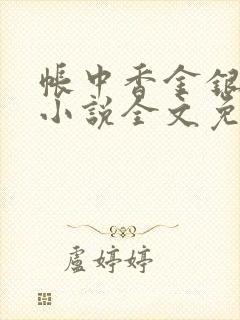 帳中香金銀
小說全文免
盧婷婷